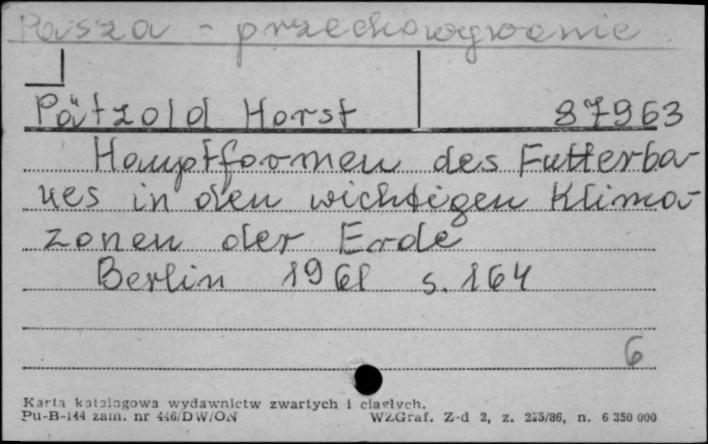 Pasza - przechowywanie
Pätzold Horst 87963
Hauptformen des Futterba-
ues in den wichtigen Klima-
zonen der Erde
Berlin 1961 s. 164
6
Karta katalogowa wydawnictw zwartych i ciągłych.
Pu-B-144 zam. nr 446/DW/ON WZGraf. Z-d 2, z. 235/86, n. 6 350 000